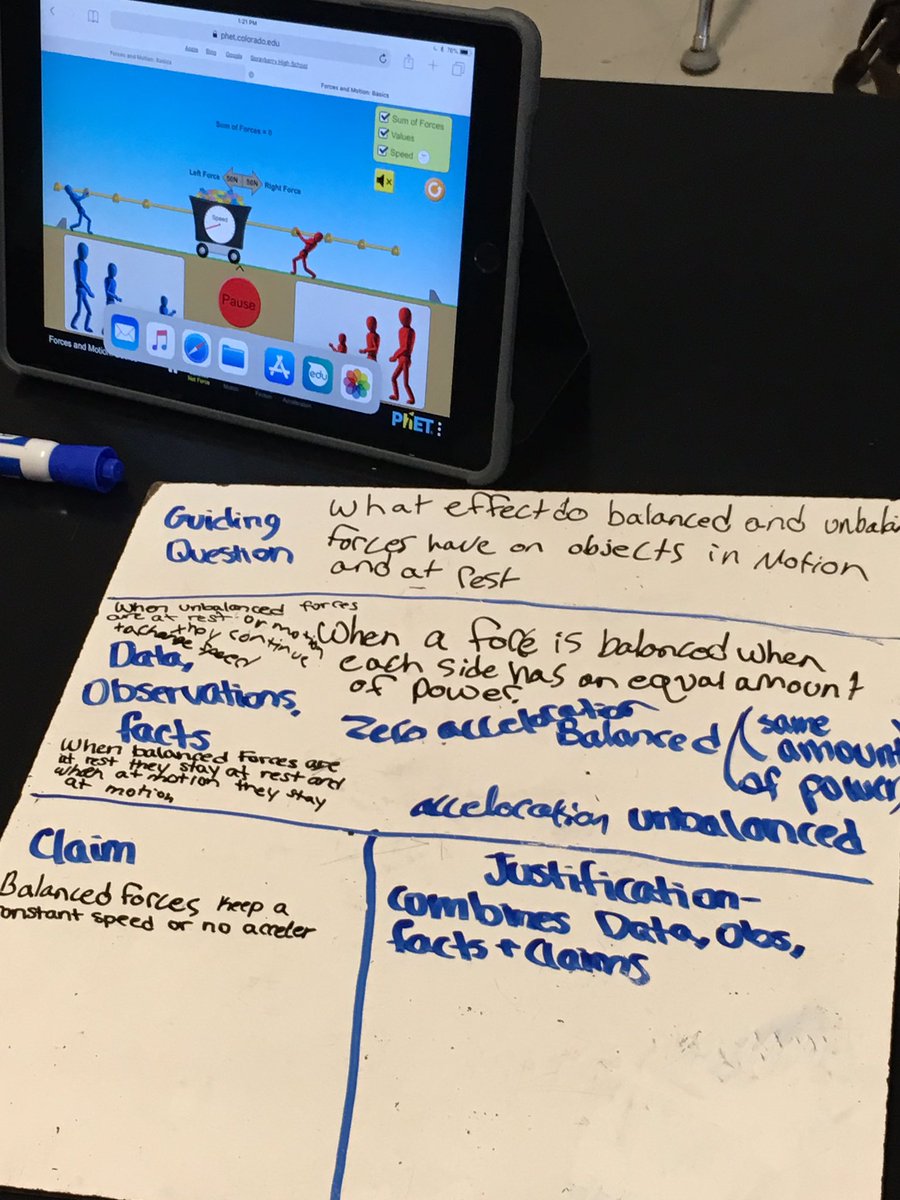 1:21 PM
phet.colorado.edu
76%
Apps Bing Google Sprayberry High School
Forces and Motion: Basics
Forces and Motion: Basics
Sum of Forces = 0
Sum of Forces
Values
Speed
Left Force 50N 50N Right Force
Speed
Pause
edu
Forces and Motion
Net Force Motion Friction Acceleration
PhET
Guiding
Question
What effect do balanced and unbalan
forces have on objects in Motion
and at Rest
When unbalanced forces
are at rest or motion
they continue
speed
Data,
Observations,
facts
When balanced Forces are
at rest they stay at rest and
when at motion they stay
at motion
When a force is balanced when
each side has an equal amount
of power.
Zero acceloration
Balanced (same
amount
of power)
accelocation unbalanced
Claim
Balanced forces keep a
onstant speed or no acceler
Justification-
Combines Data, Obs,
facts + Claims